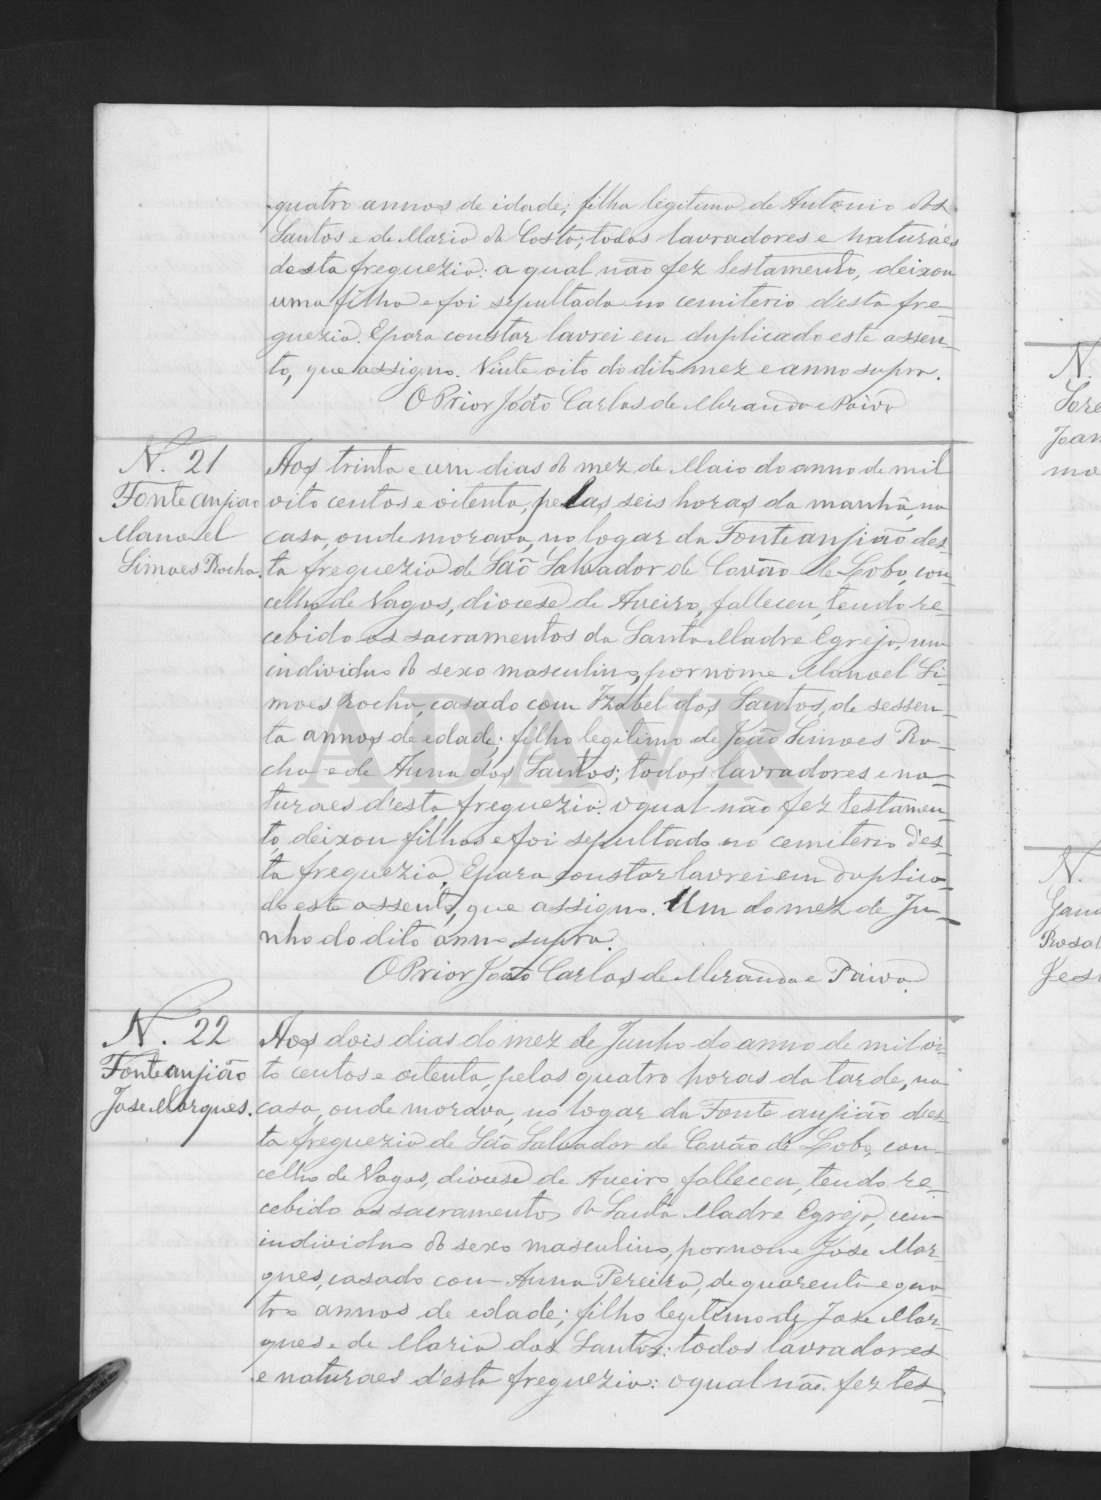 quatro annos de idade; filha legitima de Antonio dos
Santos e de Maria da Costa; todos lavradores e naturaes
desta freguezia: a qual não fez testamento, deixou
uma filha e foi sepultada no cemiterio d'esta fre-
guezia. E para constar lavrei em duplicado este assen-
to, que assigno. Vinte oito do dito mez e anno supra.
O Prior João Carlos de Miranda e Paiva
N. 21
Fonte anjião
Manoel
Simoes Rocha.
Aos trinta e um dias do mez de Maio do anno de mil
oito centos e oitenta, pelas seis horas da manhã, na
casa, onde morava, no logar da Fonte anjião des-
ta freguezia de São Salvador de Covão de Lobo, con-
celho de Vagos, diocese de Aveiro, falleceu, tendo re-
cebido os sacramentos da Santa Madre Egreja, um
individuo do sexo masculino, por nome Manoel Si-
moes Rocha, casado com Izabel dos Santos, de sessen-
ta annos de edade; filho legitimo de João Simoes Ro-
cha e de Anna dos Santos; todos lavradores e na-
turaes d'esta freguezia: o qual não fez testamen-
to, deixou filhos e foi sepultado no cemiterio d'es-
ta freguezia. E para constar lavrei em duplica-
do este assento, que assigno. Um do mez de Ju-
nho do dito anno supra.
O Prior João Carlos de Miranda e Paiva.
N. 22
Fonte anjião
Jose Marques.
Aos dois dias do mez de Junho do anno de mil oi-
to centos e oitenta, pelas quatro horas da tarde, na
casa, onde morava, no logar da Fonte anjião des-
ta freguezia de São Salvador de Covão de Lobo, con-
celho de Vagos, diocese de Aveiro, falleceu, tendo re-
cebido os sacramentos da Santa Madre Egreja, um
individuo do sexo masculino, por nome Jose Mar-
ques, casado com Anna Pereira, de quarenta e qua-
tro annos de edade; filho legitimo de Jose Mar-
ques e de Maria dos Santos: todos lavradores
e naturaes d'esta freguezia: o qual não fez tes-
ADAVR
N.
N.